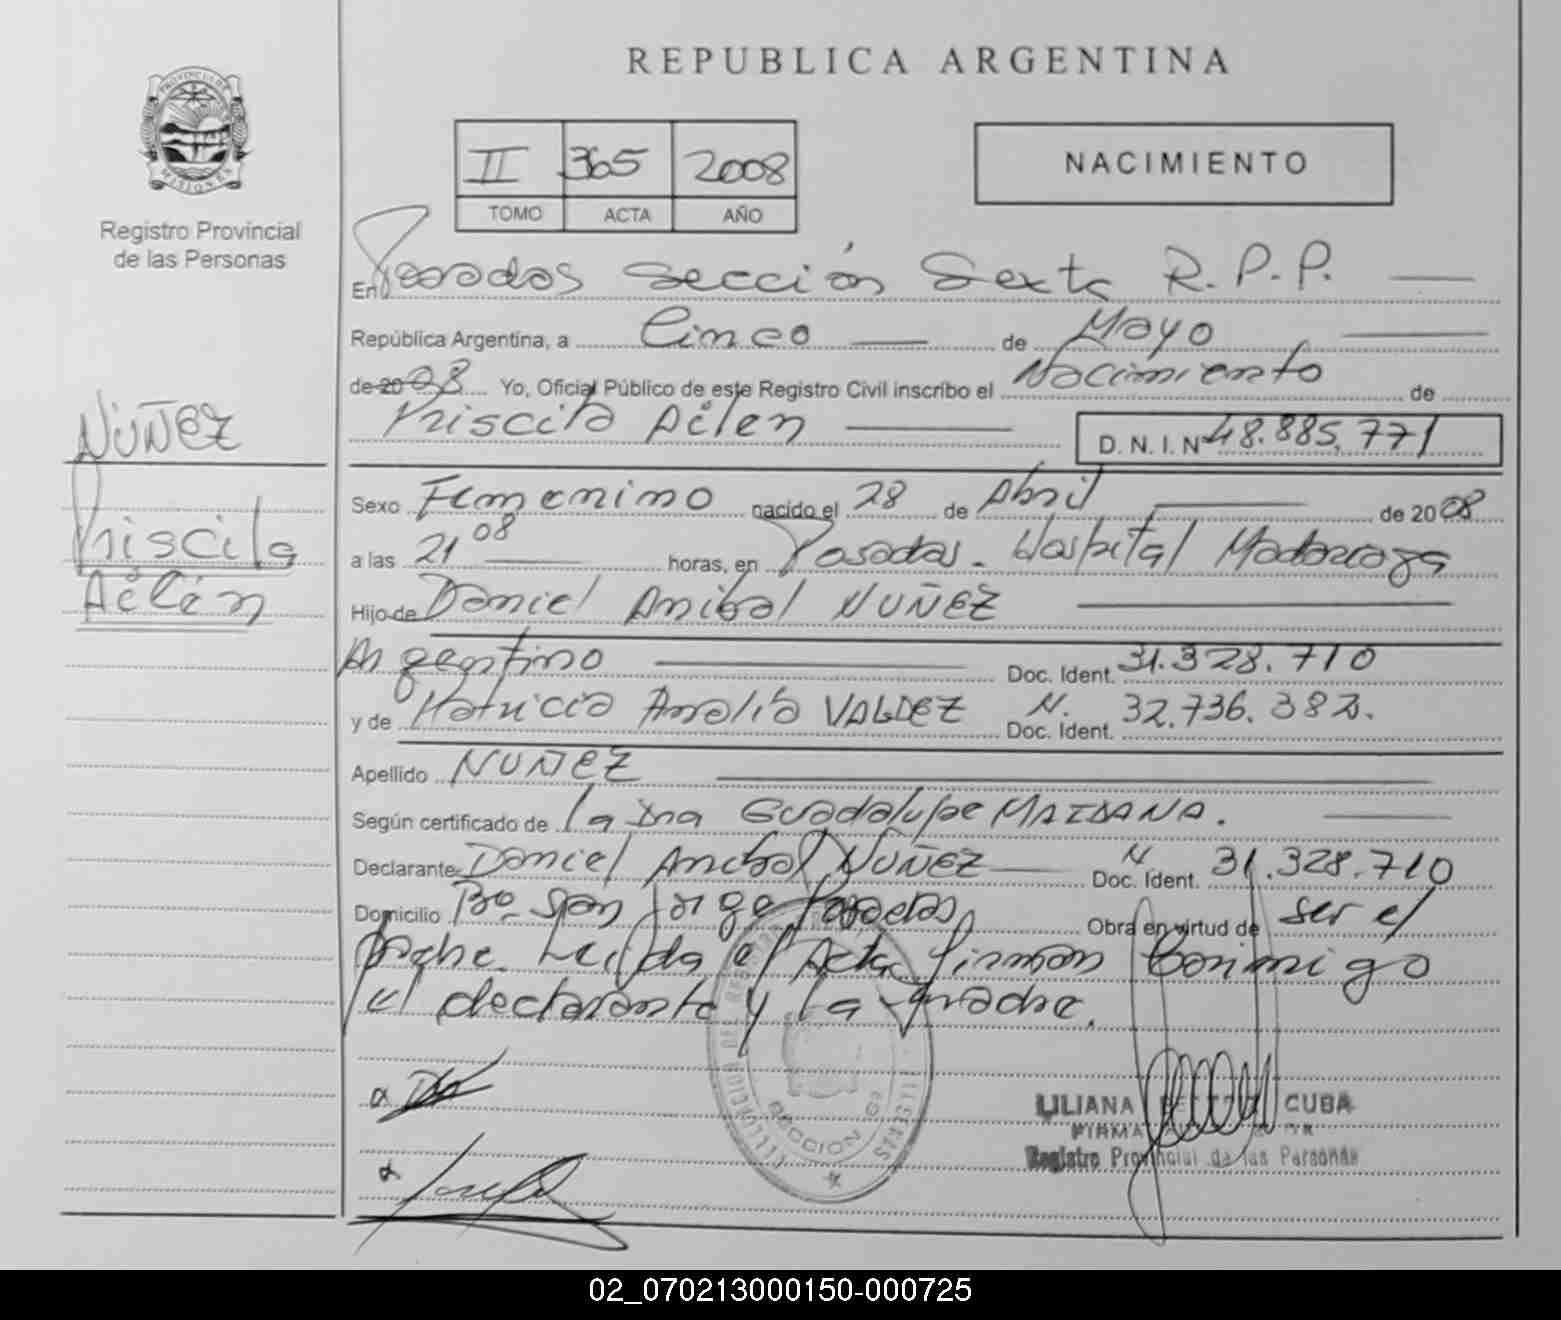 REPUBLICA ARGENTINA
PROVINCIA DE
MISIONES
Registro Provincial
de las Personas
II 365 2008
TOMO ACTA AÑO
NACIMIENTO
En Posadas Sección Sexta R.P.P.
República Argentina, a Cinco de Mayo
de 2008 Yo, Oficial Público de este Registro Civil inscribo el Nacimiento de
Priscila Ailen D. N. I. Nº 48.885.771
NUÑEZ
Priscila
Ailén
Sexo Femenino nacido el 28 de Abril de 2008
a las 21 08 horas, en Posadas - Hospital Madariaga
Hijo de Daniel Anibal NUÑEZ
Argentino Doc. Ident. 31.328.710
y de Patricia Analía VALDEZ N. Doc. Ident. 32.736.382.
Apellido NUÑEZ
Según certificado de la Dra Guadalupe MAIDANA.
Declarante Daniel Anibal NUÑEZ N Doc. Ident. 31.328.710
Domicilio Bº San Jorge Posadas Obra en virtud de ser el
padre. Leída el Acta firman Conmigo
el declarante y la madre.
SECCION 6ª
LILIANA CUBA
FIRMA
Registro Provincial de las Personas
02_070213000150-000725